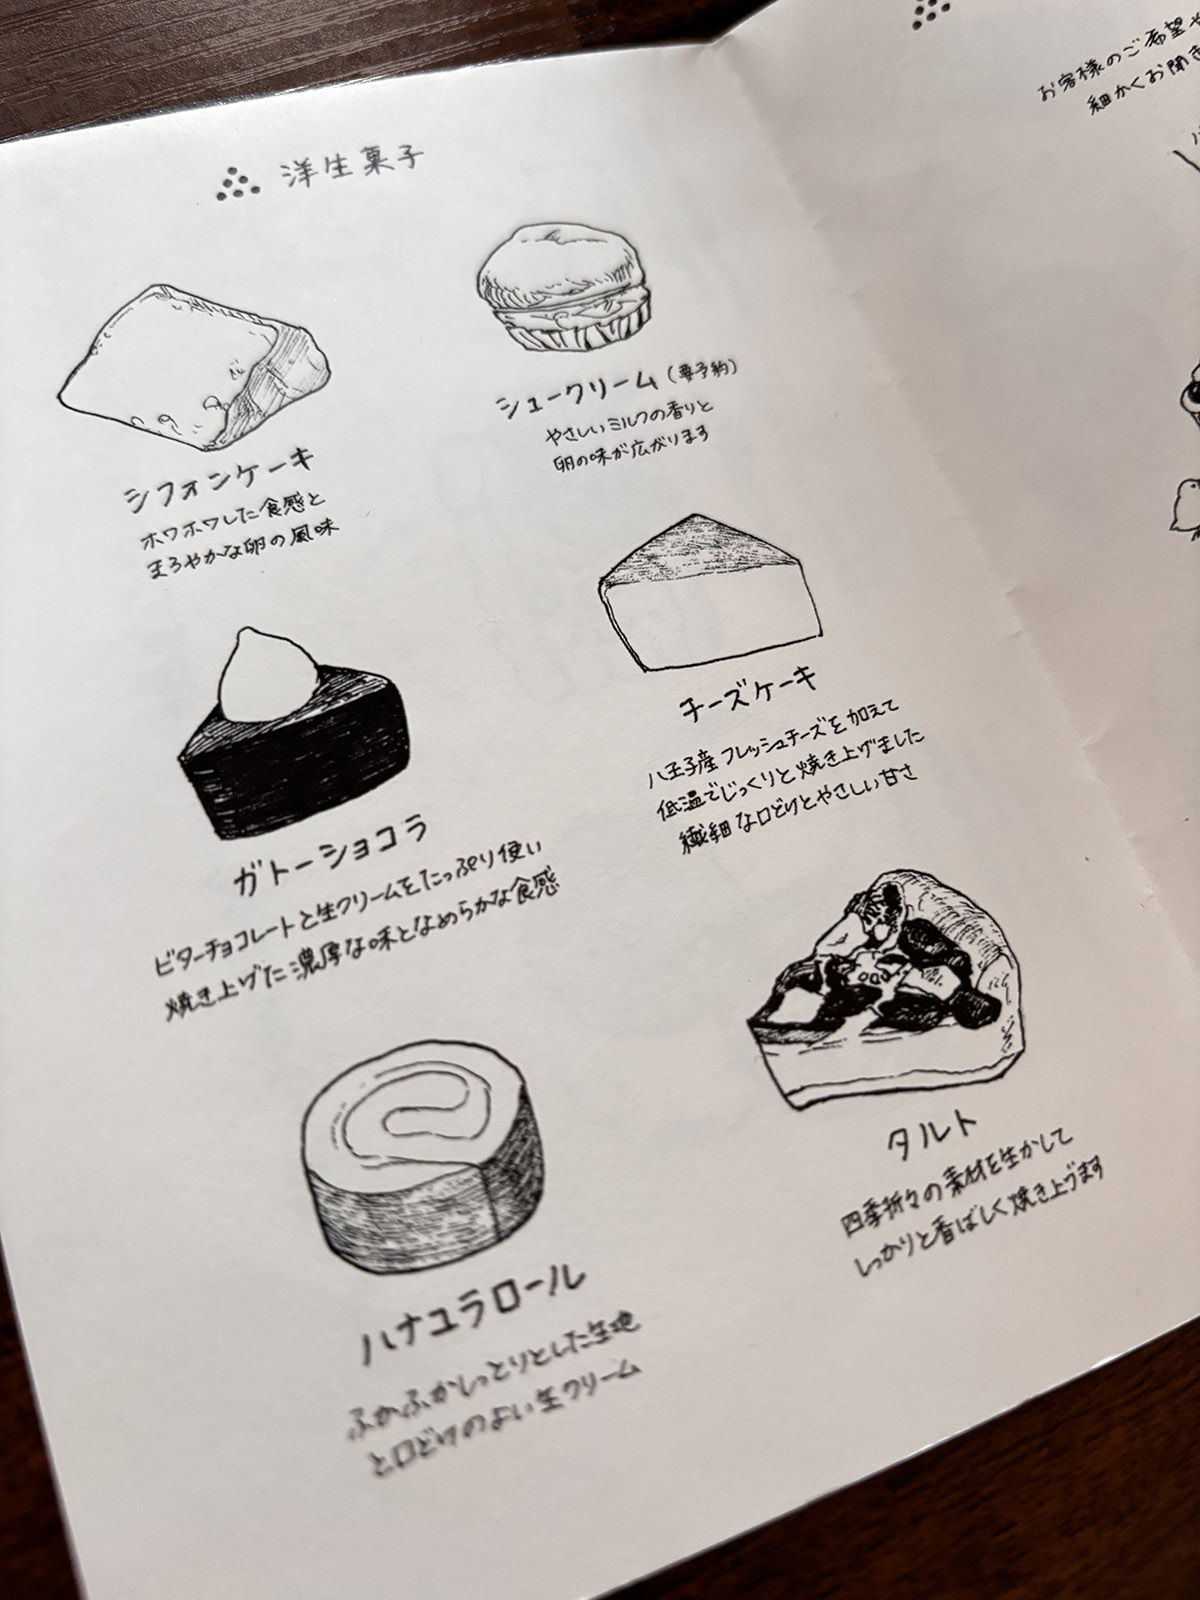 洋生菓子
シフォンケーキ
ホワホワした食感と
まろやかな卵の風味
シュークリーム（要予約）
やさしいミルクの香りと
卵の味が広がります
ガトーショコラ
ビターチョコレートと生クリームをたっぷり使い
焼き上げた濃厚な味となめらかな食感
チーズケーキ
八王子産フレッシュチーズを加えて
低温でじっくりと焼き上げました
繊細な口どけとやさしい甘さ
ハナユラロール
ふかふかしっとりとした生地
と口どけのよい生クリーム
タルト
四季折々の素材を生かして
しっかりと香ばしく焼き上げます
お客様のご希望や
細かくお聞き